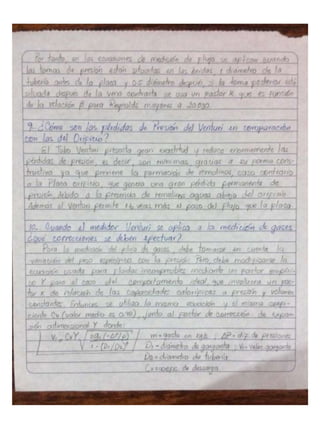 Por tanto, en las condiciones de medición de flujo, se aplican cuando
las tomas de presión están situadas en las bridas, 1 diámetro de la
tubería antes de la placa y 0.5 diámetro después, si la toma posterior está
situada después de la vena contracta se usa un factor K que es función
de la relación β para Reynolds mayores a 20000.
9. ¿Cómo son las pérdidas de Presión del Venturi en comparación
con las del Orificio?
El Tubo Venturi presenta gran exactitud y reduce enormemente las
pérdidas de presión, es decir, son mínimas gracias a su forma cons-
tructiva ya que previene la formación de remolinos, caso contrario
a la Placa orificio, que genera una gran pérdida permanente de
presión debido a la presencia de remolino aguas abajo del orificio.
Además el Venturi permite 1.6 veces más el paso del flujo que la placa.
10. Cuando el medidor Venturi se aplica a la medición de gases
¿qué correcciones se deben efectuar?
Para la medición del flujo de gases, debe tomarse en cuenta la
variación del peso específico con la presión. Pero debe modificarse la
ecuación usada para fluidos incompresibles mediante un factor empíri-
co Y para el caso del comportamiento ideal, que involucra un fac-
tor K de relación de las capacidades caloríficas a presión y volumen
constantes. Entonces se utiliza la misma ecuación y el mismo coefi-
ciente Cv (valor medio es 0.98), junto al factor de corrección de expan-
sión adimensional Y donde:
m = gasto en kg/s ΔP = dif. de presiones
D1 = diámetro de garganta
D2 = diámetro de tubería
C = coefic. de descarga